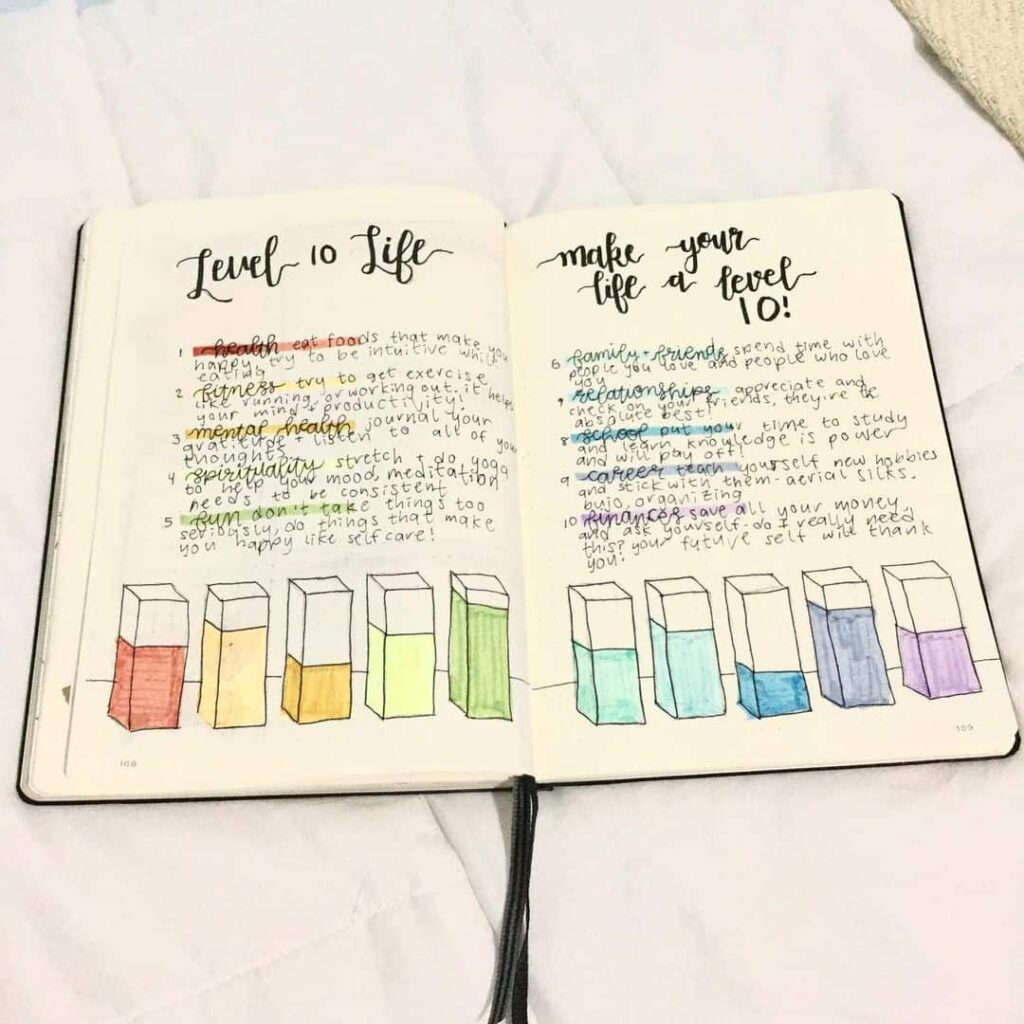 Level 10 Life
1 health eat foods that make you
happy try to be intuitive while
eating
2 fitness try to get exercise
like running or working out. it helps
your mind + productivity!
3 mental health journal your
gratitude + listen to all of your
thoughts?
4 spirituality stretch + do yoga
to help your mood, meditation
needs to be consistent
5 fun don't take things too
seriously, do things that make
you happy like self care!
168
make your
life a level
10!
6 family + friends spend time with
people you love and people who love
you
7 relationships appreciate and
check on your friends, they're the
absolute best!
8 school put your time to study
and learn knowledge is power
and will pay off!
9 career teach yourself new hobbies
and stick with them-aerial silks.
bujo, organizing
10 finances save all your money
and ask yourself-do I really need
this? your future self will thank
you!
169